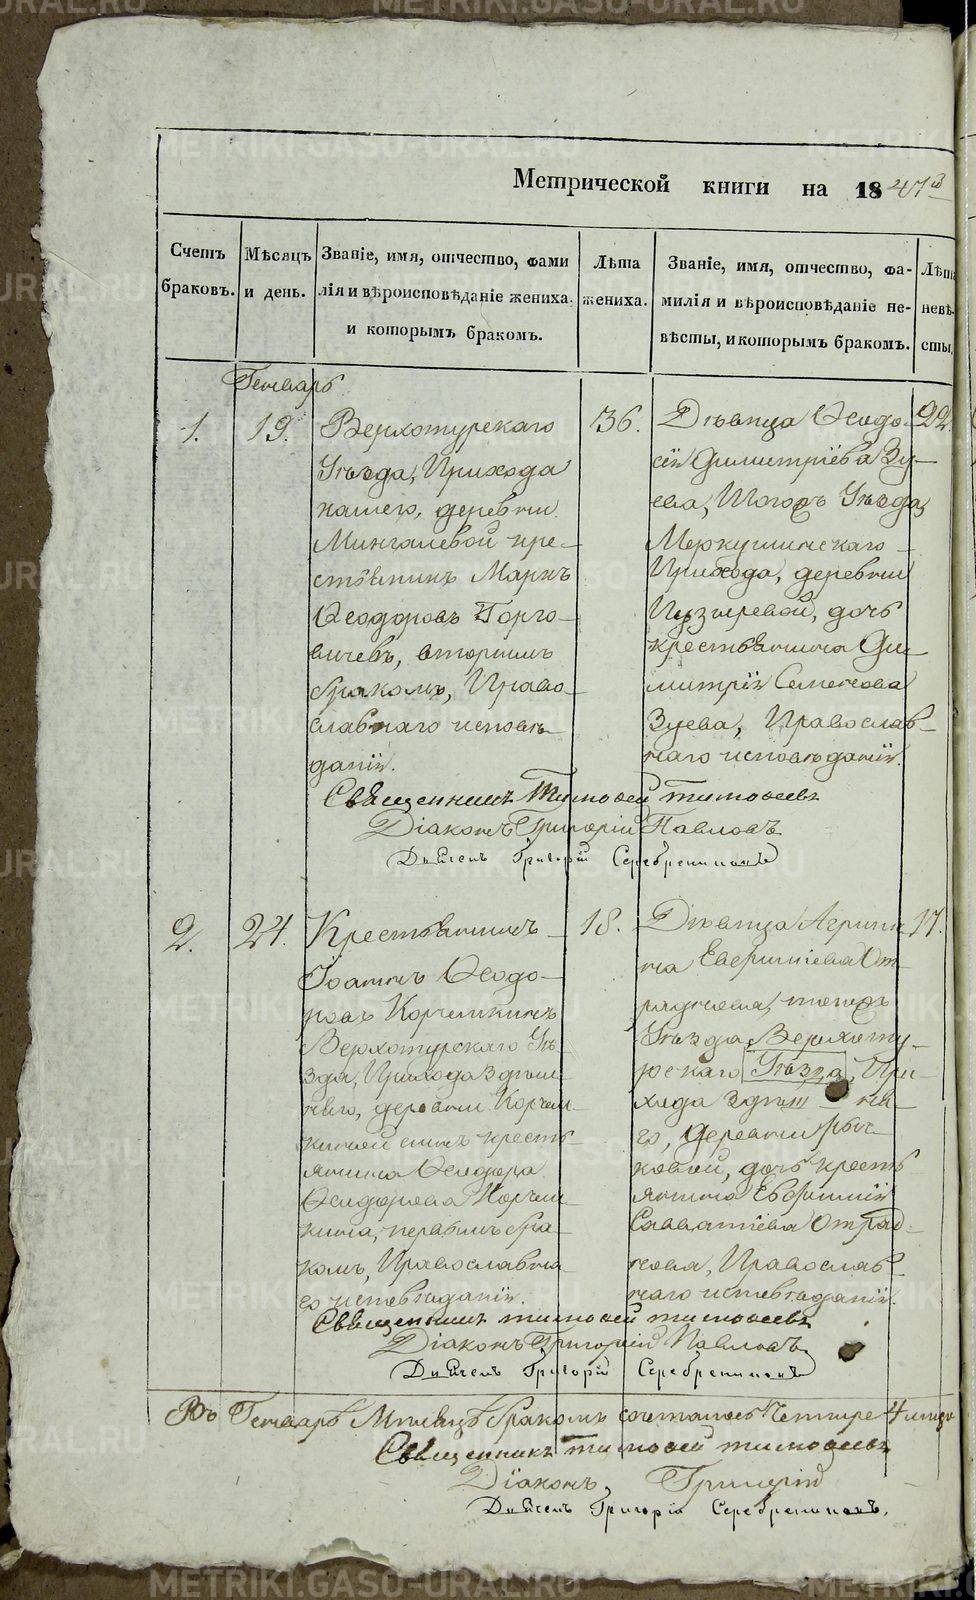 Метрической книги на 1847й
Счетъ браковъ.
Мѣсяцъ и день.
Званіе, имя, отчество, фамилія и вѣроисповѣданіе жениха. и которымъ бракомъ.
Лѣта жениха.
Званіе, имя, отчество, фамилія и вѣроисповѣданіе невѣсты, и которымъ бракомъ.
Лѣта невѣсты.
Генварь
1.
19.
Верхотурскаго
Уѣзда, Прихода
нашего, деревни
Мингалевой кре-
стьянинъ Маркъ
Ѳеодоровъ Торго-
вичевъ, вторымъ
бракомъ, Право-
славнаго исповѣ-
данія.
36.
Дѣвица Ѳеодо-
сія Димитріева Зу-
ева, Тогожъ Уѣзда,
Меркушинскаго
Прихода, деревни
Пузыревой, дочь
крестьянина Ди-
митрія Семенова
Зуева, Православ-
наго исповѣданія.
22.
Священникъ Тимоѳей Тимоѳеевъ
Діаконъ Григорій Павловъ
Дьячекъ Григорій Серебрениковъ
2.
24.
Крестьянинъ
Іоаннъ Ѳеодо-
ровъ Корчемкинъ
Верхотурскаго Уѣ-
зда, Прихода здѣш-
няго, деревни Корчем-
киной сынъ кресть-
янина Ѳеодора
Ѳеодорова Корчем-
кина, первымъ бра-
комъ, Православна-
го исповѣданія.
18.
Дѣвица Агрипи-
на Евфиміева От-
раднова, тогожъ
Уѣзда, Верхоту-
рскаго Уѣзда, При-
хода здѣш- ня-
го, деревни
ковой, дочь кресть
янина Евфимія
Савватіева Отрад-
нова, Православ-
наго исповѣданія.
17.
Священникъ Тимоѳей Тимоѳеевъ
Діаконъ Григорій Павловъ
Дьячекъ Григорій Серебрениковъ
Въ Генварѣ Мѣсяцѣ бракомъ сочеталось Четыре 4 лица
Священникъ Тимоѳей Тимоѳеевъ
Діаконъ, Григорій
Дьячекъ Григорій Серебрениковъ.
METRIKI.GASU-URAL.RU